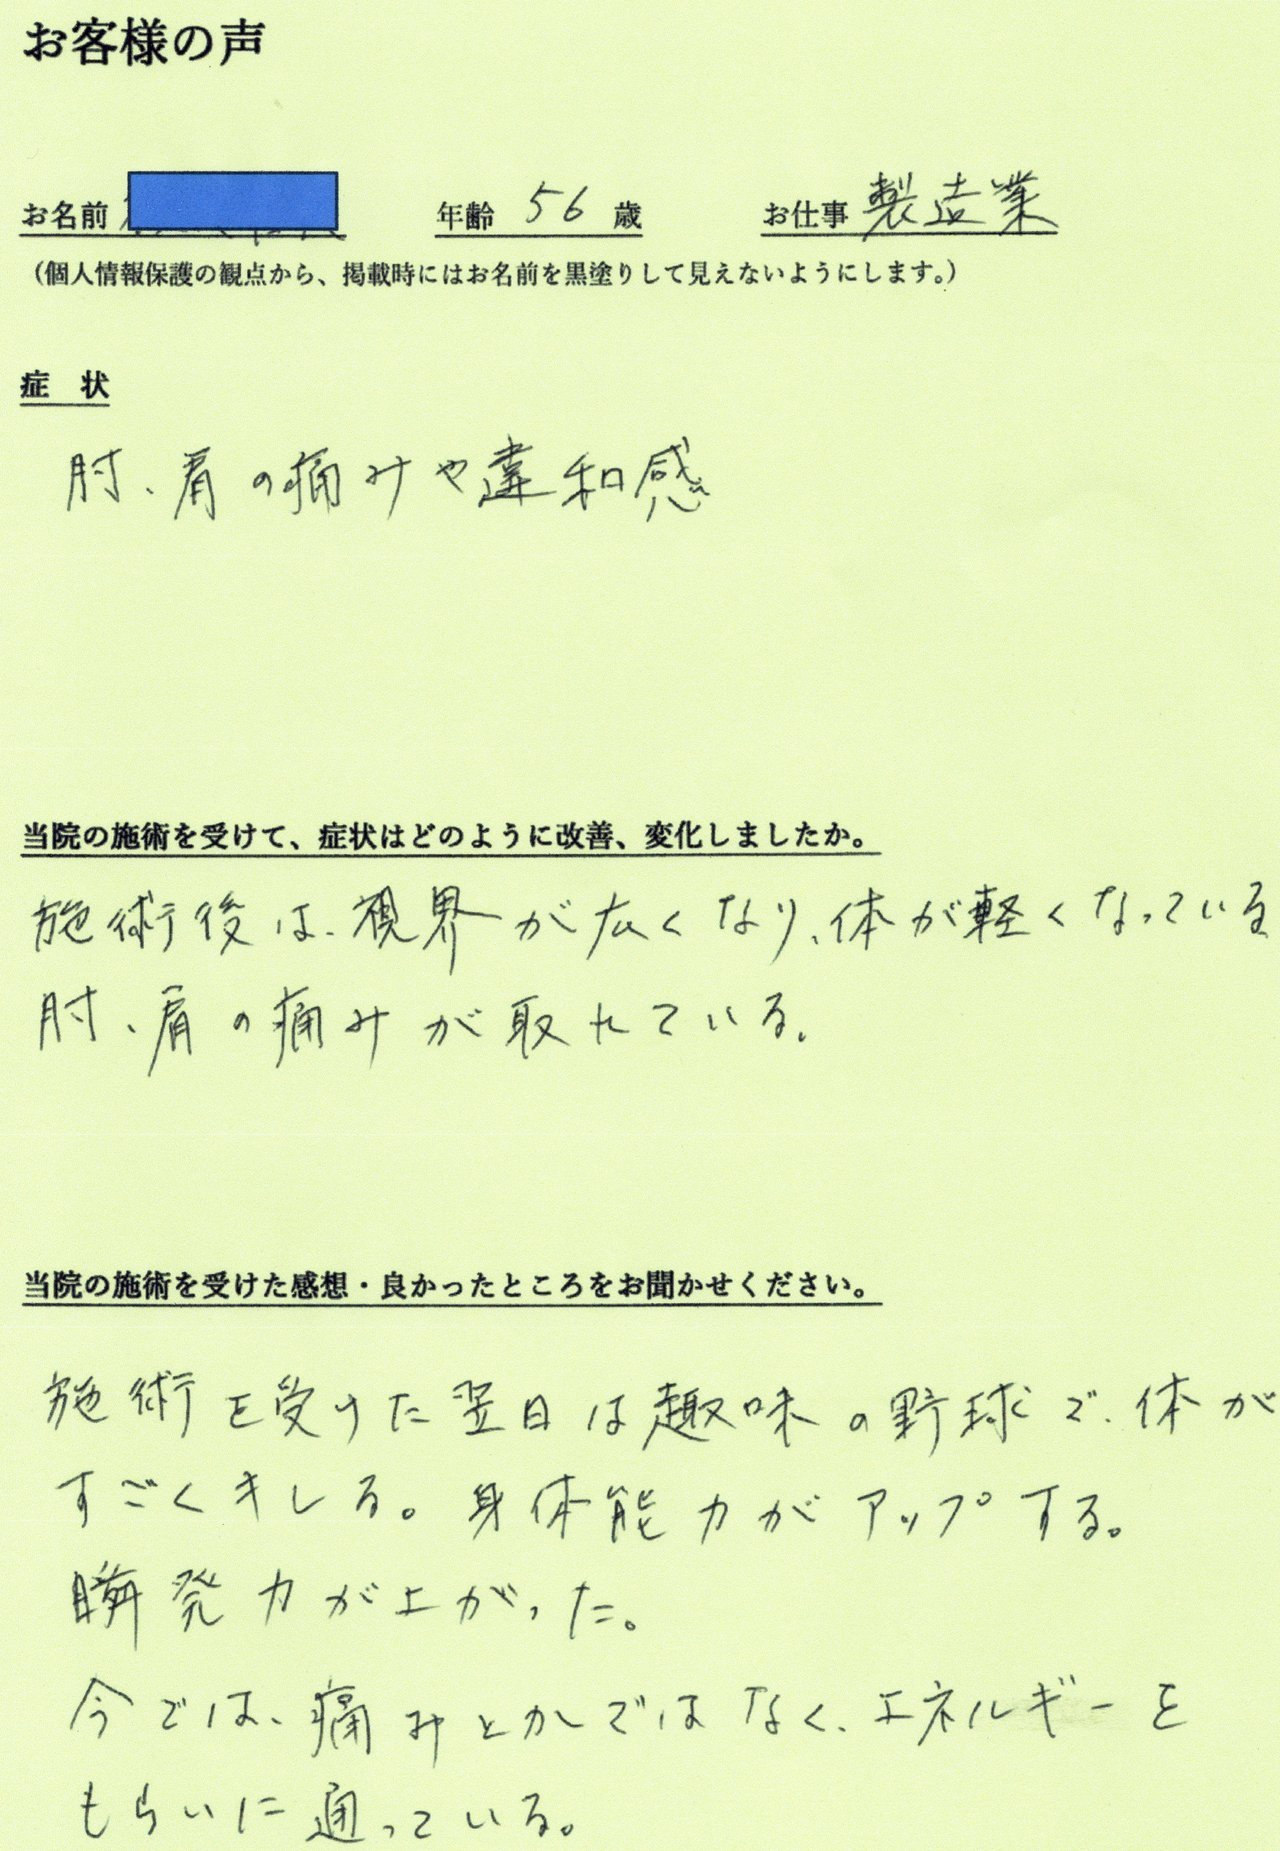 お客様の声
お名前 年齢 56 歳 お仕事 製造業
（個人情報保護の観点から、掲載時にはお名前を黒塗りして見えないようにします。）
症 状
肘、肩の痛みや違和感
当院の施術を受けて、症状はどのように改善、変化しましたか。
施術後は、視界が広くなり、体が軽くなっている
肘、肩の痛みが取れている。
当院の施術を受けた感想・良かったところをお聞かせください。
施術を受けた翌日は趣味の野球で、体が
すごくキレる。身体能力がアップする。
瞬発力が上がった。
今では、痛みとかではなく、エネルギーを
もらいに通っている。